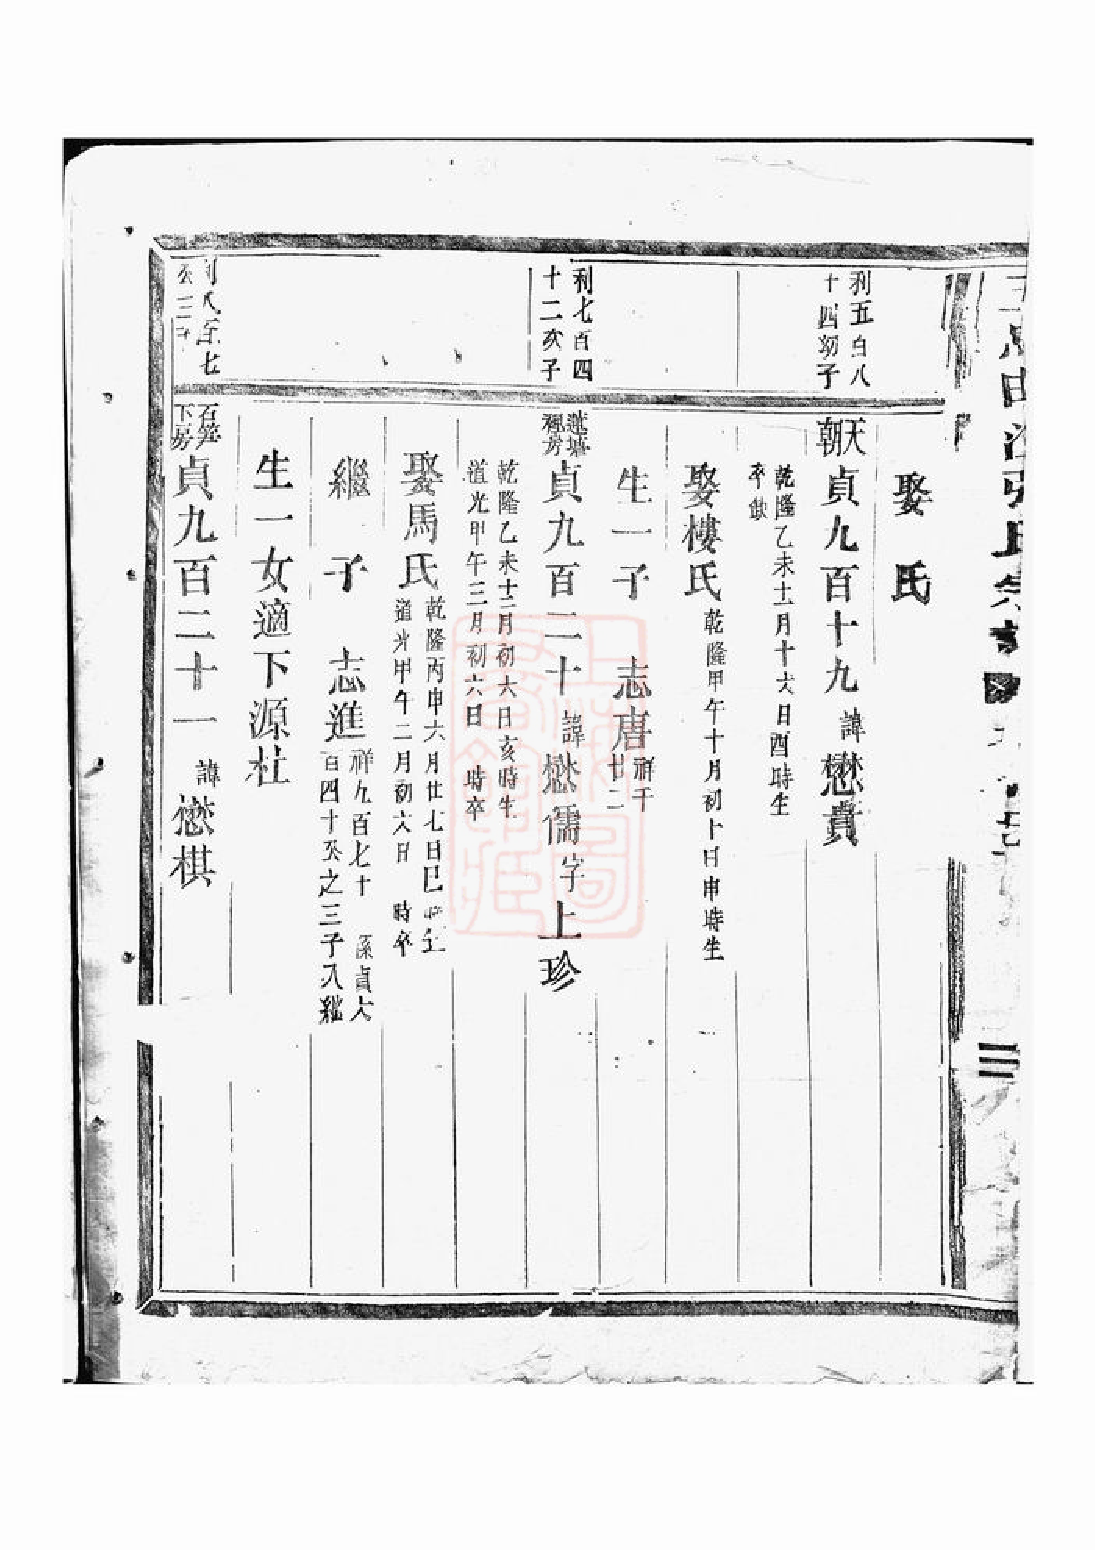 娶 氏
利五百八
十四幼子
天
朝
貞九百十九 諱 懋貴
乾隆乙未十二月十六日酉時生
卒缺
娶樓氏 乾隆甲午十月初十日申時生
生一子 志唐 祥千
廿二
利七百四
十二次子
蓮塘
禩房
貞九百二十 諱 懋儒 字 上珍
乾隆乙未十二月初六日亥時生
道光甲午三月初六日 時卒
娶馬氏 乾隆丙申六月廿七日巳時生
道光甲午二月初六日 時卒
繼子 志進 祥九百七十 係貞六
百四十 之三子入繼
生一女適下源杜
下房
貞九百二十一 諱 懋棋
上海圖
書館藏